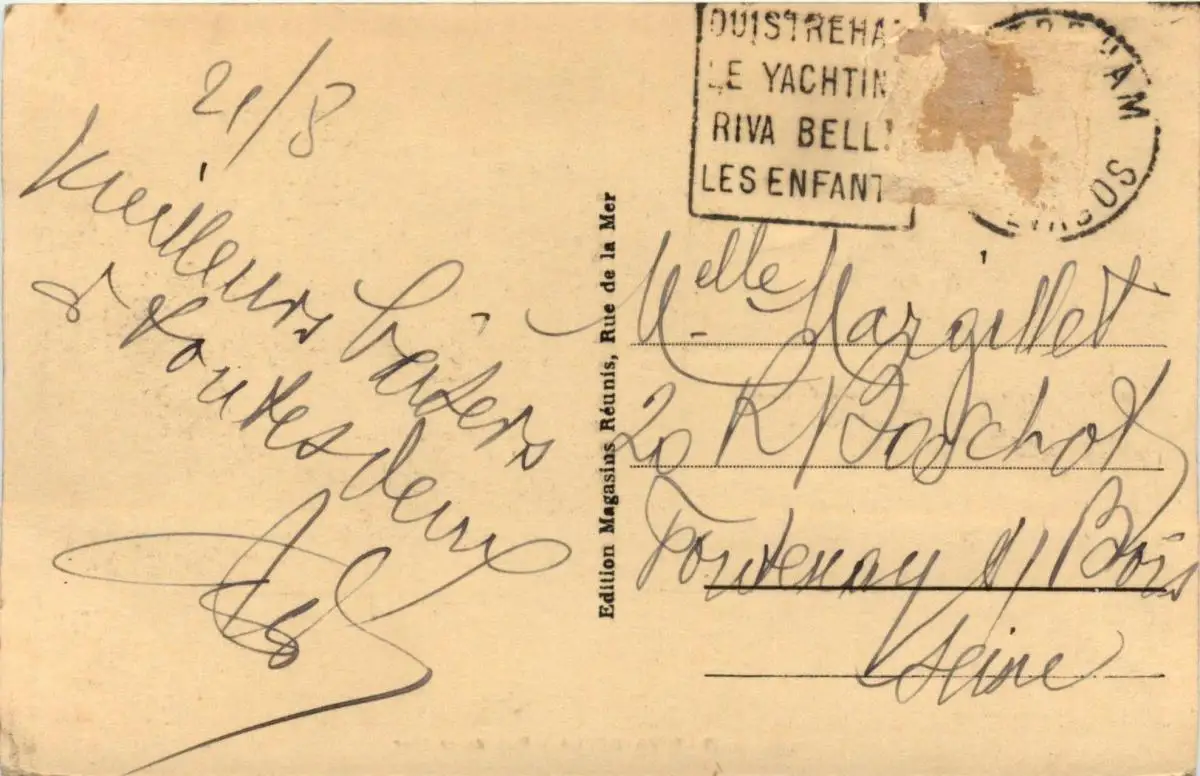 21/8
Meilleurs baisers
à toutes deux
OUISTREHA
LE YACHTIN
RIVA BELL
LES ENFANT
Edition Magasins Réunis, Rue de la Mer
Melle Margillet
20 R Boschot
Fontenay s/ Bois
Seine